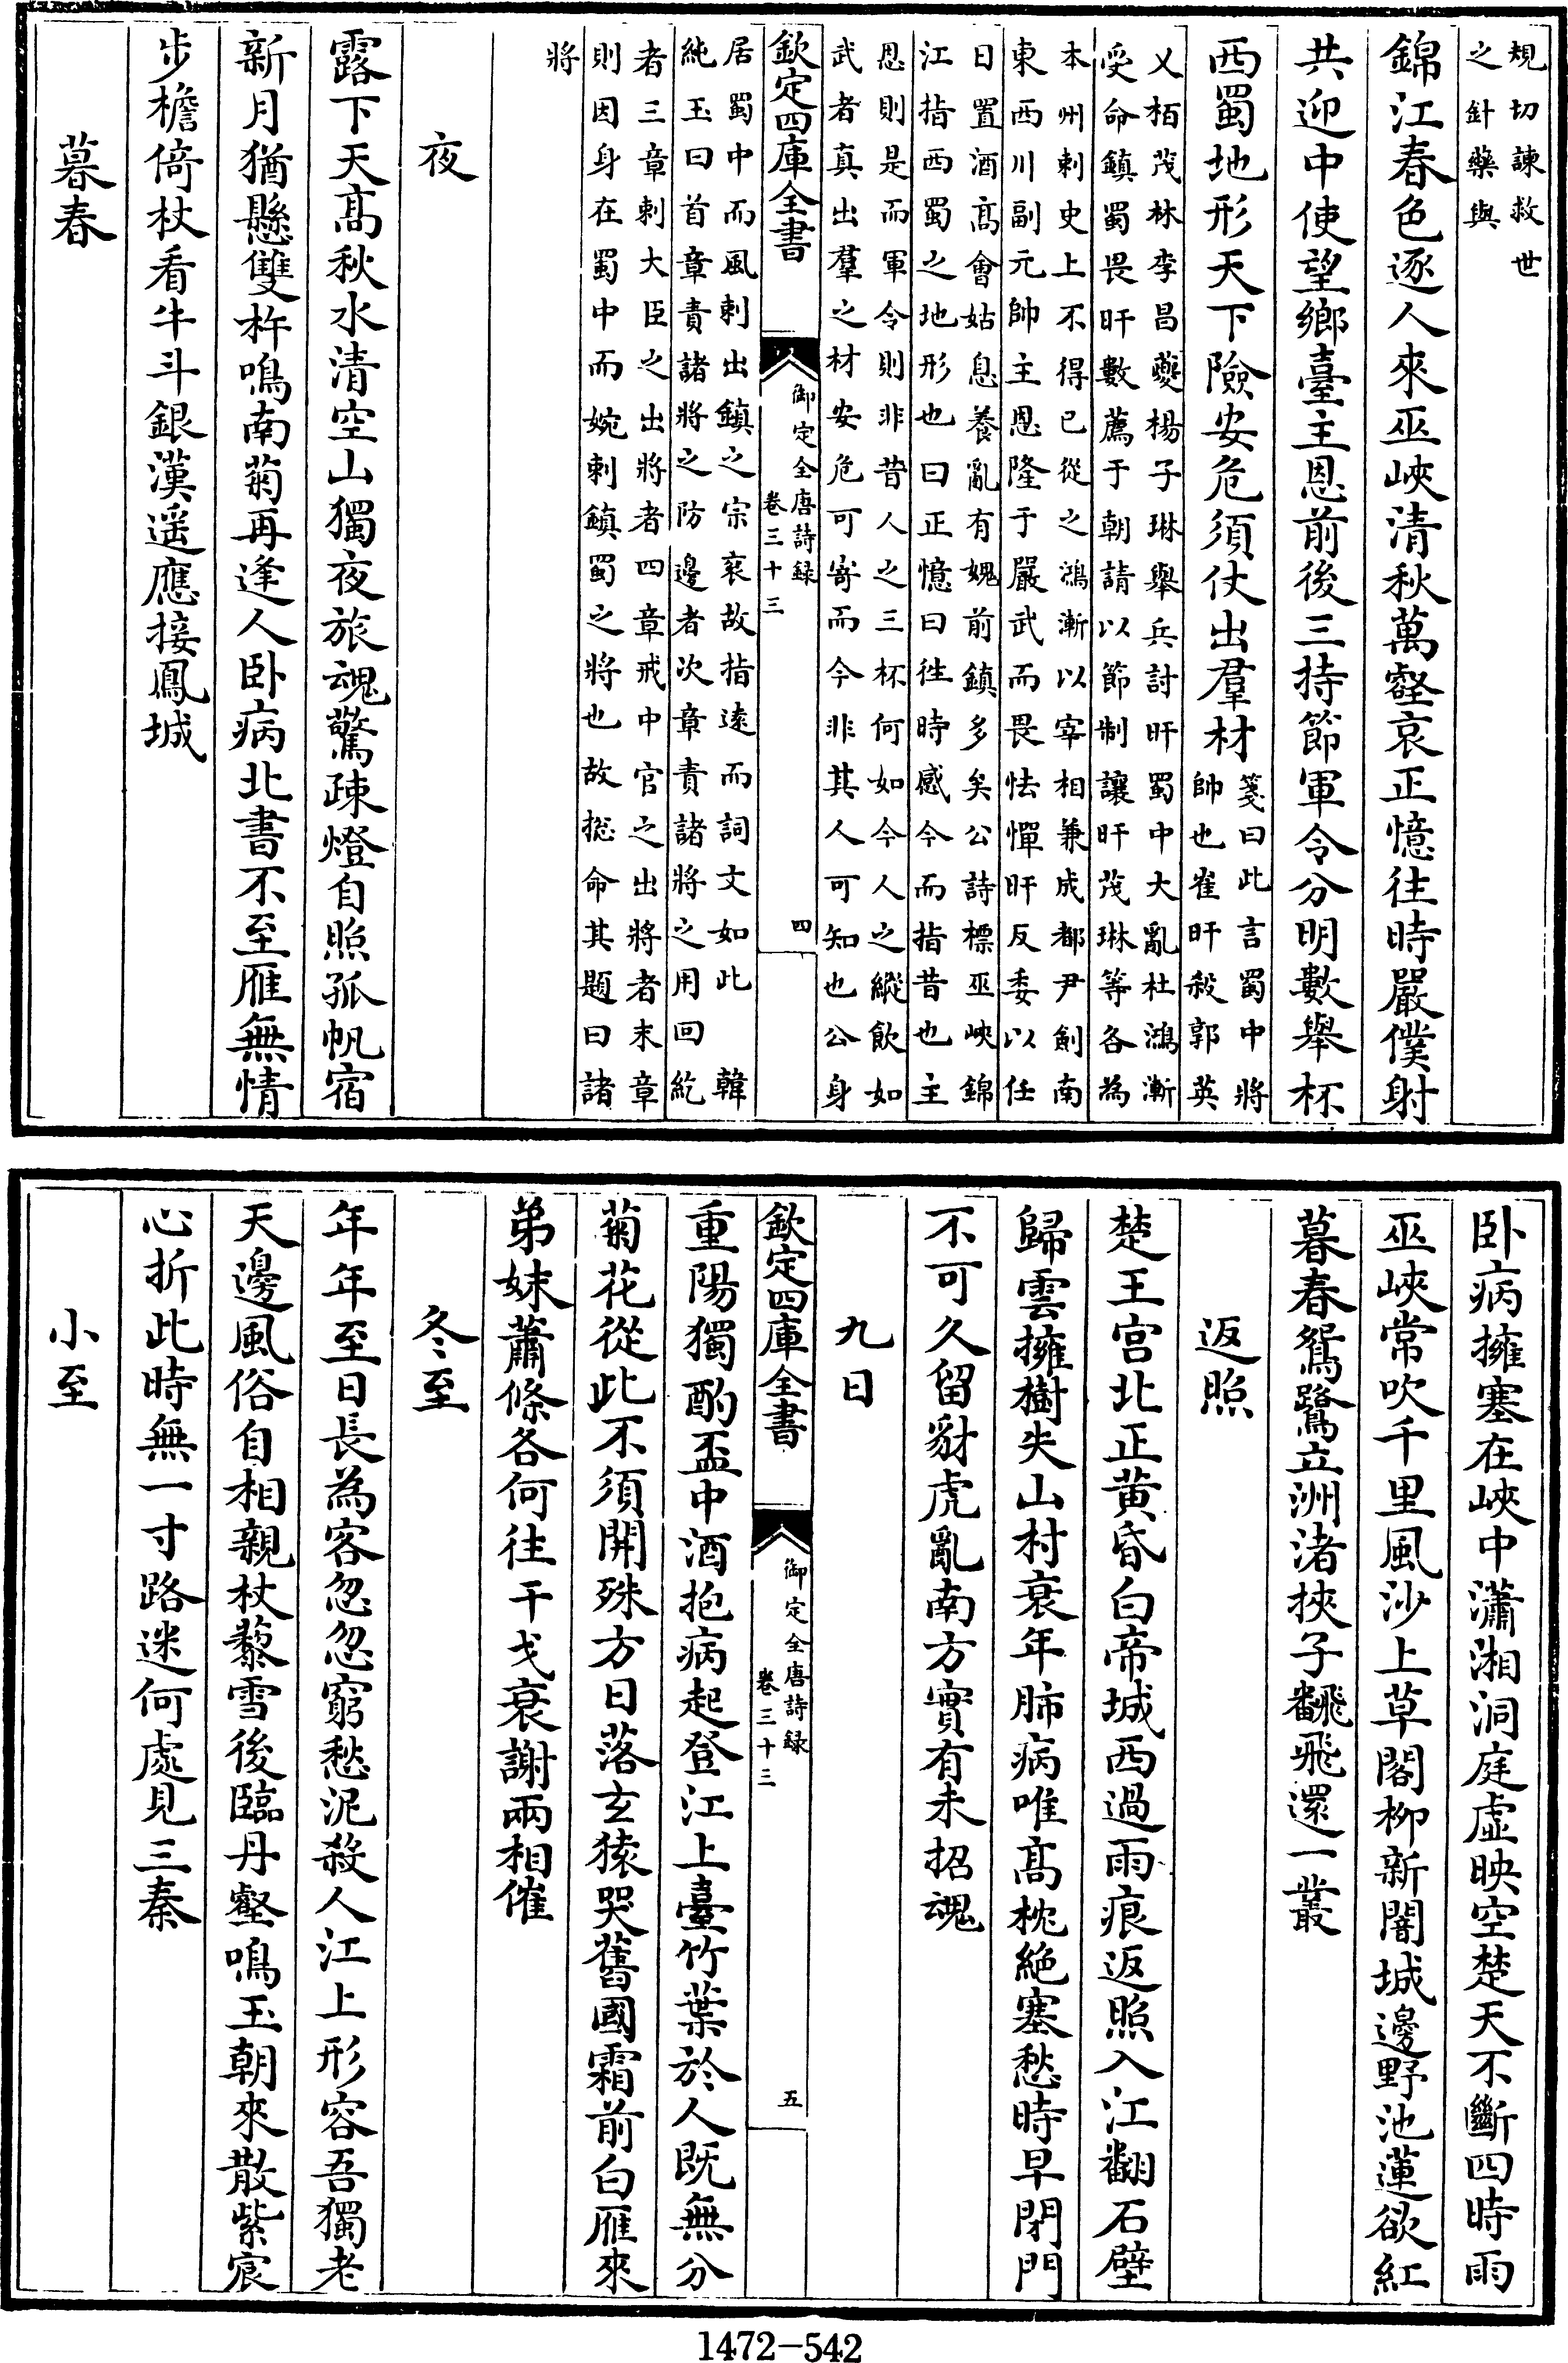 規切諫救世
之針藥與
錦江春色逐人來巫峽清秋萬壑哀正憶往時嚴僕射
共迎中使望鄉臺主恩前後三持節軍令分明數舉杯
西蜀地形天下險安危須仗出羣材
箋曰此言蜀中將
帥也崔旰殺郭英
乂栢茂林李昌夔楊子琳舉兵討旰蜀中大亂杜鴻漸
受命鎮蜀畏旰數薦于朝請以節制讓旰茂琳等各為
本州剌史上不得已從之鴻漸以宰相兼成都尹劍南
東西川副元帥主恩隆于嚴武而畏怯憚旰反委以任
日置酒髙會姑息養亂有媿前鎮多矣公詩標巫峽錦
江指西蜀之地形也曰正憶曰往時感今而指昔也主
恩則是而軍令則非昔人之三杯何如今人之縱飲如
武者真出羣之材安危可寄而今非其人可知也公身
欽定四庫全書
御定全唐詩録
卷三十三
四
居蜀中而風剌出鎮之宗衮故指逺而詞文如此 韓
純玉曰首章責諸將之防邊者次章責諸將之用回紇
者三章剌大臣之出將者四章戒中官之出將者末章
則因身在蜀中而婉刺鎮蜀之將也故揔命其題曰諸
將
夜
露下天髙秋水清空山獨夜旅魂驚疎燈自照孤帆宿
新月猶懸雙杵鳴南菊再逢人卧病北書不至雁無情
步檐倚杖看牛斗銀漢遥應接鳳城
暮春
卧病擁塞在峽中瀟湘洞庭虛映空楚天不斷四時雨
巫峽常吹千里風沙上草閣柳新闇城邊野池蓮欲紅
暮春鴛鷺立洲渚挾子飜飛還一叢
返照
楚王宫北正黄昏白帝城西過雨痕返照入江翻石壁
歸雲擁樹失山村衰年肺病唯髙枕絶塞愁時早閉門
不可久留豺虎亂南方實有未招魂
九日
欽定四庫全書
御定全唐詩録
卷三十三
五
重陽獨酌盃中酒抱病起登江上臺竹葉於人既無分
菊花從此不須開殊方日落玄猿哭舊國霜前白雁來
弟妹蕭條各何往干戈衰謝兩相催
冬至
年年至日長為客忽忽窮愁泥殺人江上形容吾獨老
天邊風俗自相親杖藜雪後臨丹壑鳴玉朝來散紫宸
心折此時無一寸路迷何處見三秦
小至
1472-542